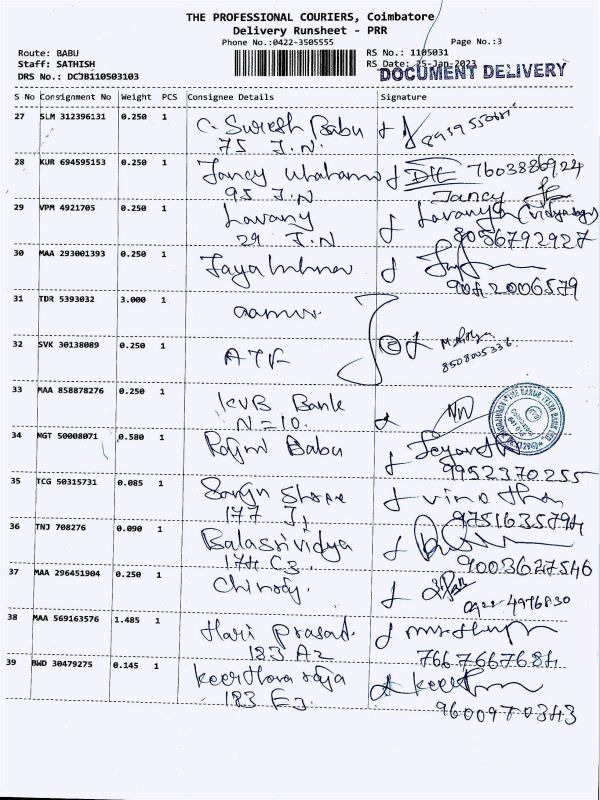 THE PROFESSIONAL COURIERS, Coimbatore
Delivery Runsheet - PRR
Phone No.:0422-3505555
Page No.:3
Route: BABU
RS No.: 1105031
Staff: SATHISH
RS Date: 25-Jan-2023
DRS No.: DCJB110503103
DOCUMENT DELIVERY
S No Consignment No Weight PCS Consignee Details Signature
27 SLM 312396131 0.250 1 C. Suresh Babu
75 I.N.
28 KUR 694595153 0.250 1 Jancy 7603886924
95 I.N Jancy
29 VPM 4921705 0.250 1 Lavany Lavanya
29 I.N 8056792927
30 MAA 293001393 0.250 1
9042006579
31 TDR 5393032 3.000 1
32 SVK 30138089 0.250 1
8508005336
33 MAA 858878276 0.250 1 KVB Bank
N=10.
34 MGT 50008071 0.580 1 Babu
9952370255
35 TCG 50315731 0.085 1
177 9751635794
36 TNJ 708276 0.090 1 Balasrividya
174 C3 9003627546
37 MAA 296451904 0.250 1
38 MAA 569163576 1.485 1 Hari Prasad.
183 A2 7667667684
39 BWD 30479275 0.145 1
183 9600970343